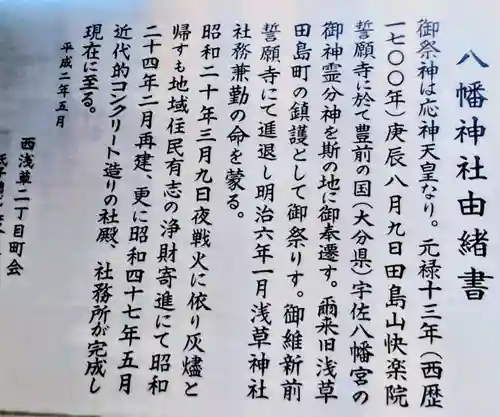 八幡神社由緒書
御祭神は応神天皇なり。元禄十三年(西歴
一七〇〇年)庚辰八月九日田島山快楽院
誓願寺に於て豊前の国(大分県)宇佐八幡宮の
御神霊分神を斯の地に御奉遷す。爾来旧浅草
田島町の鎮護として御祭りす。御維新前
誓願寺にて進退し明治六年一月浅草神社
社務兼勤の命を蒙る。
昭和二十年三月九日夜戦火に依り灰燼と
帰すも地域住民有志の浄財寄進にて昭和
二十四年二月再建、更に昭和四十七年五月
近代的コンクリート造りの社殿、社務所が完成し
現在に至る。
平成二年五月
西浅草二丁目町会